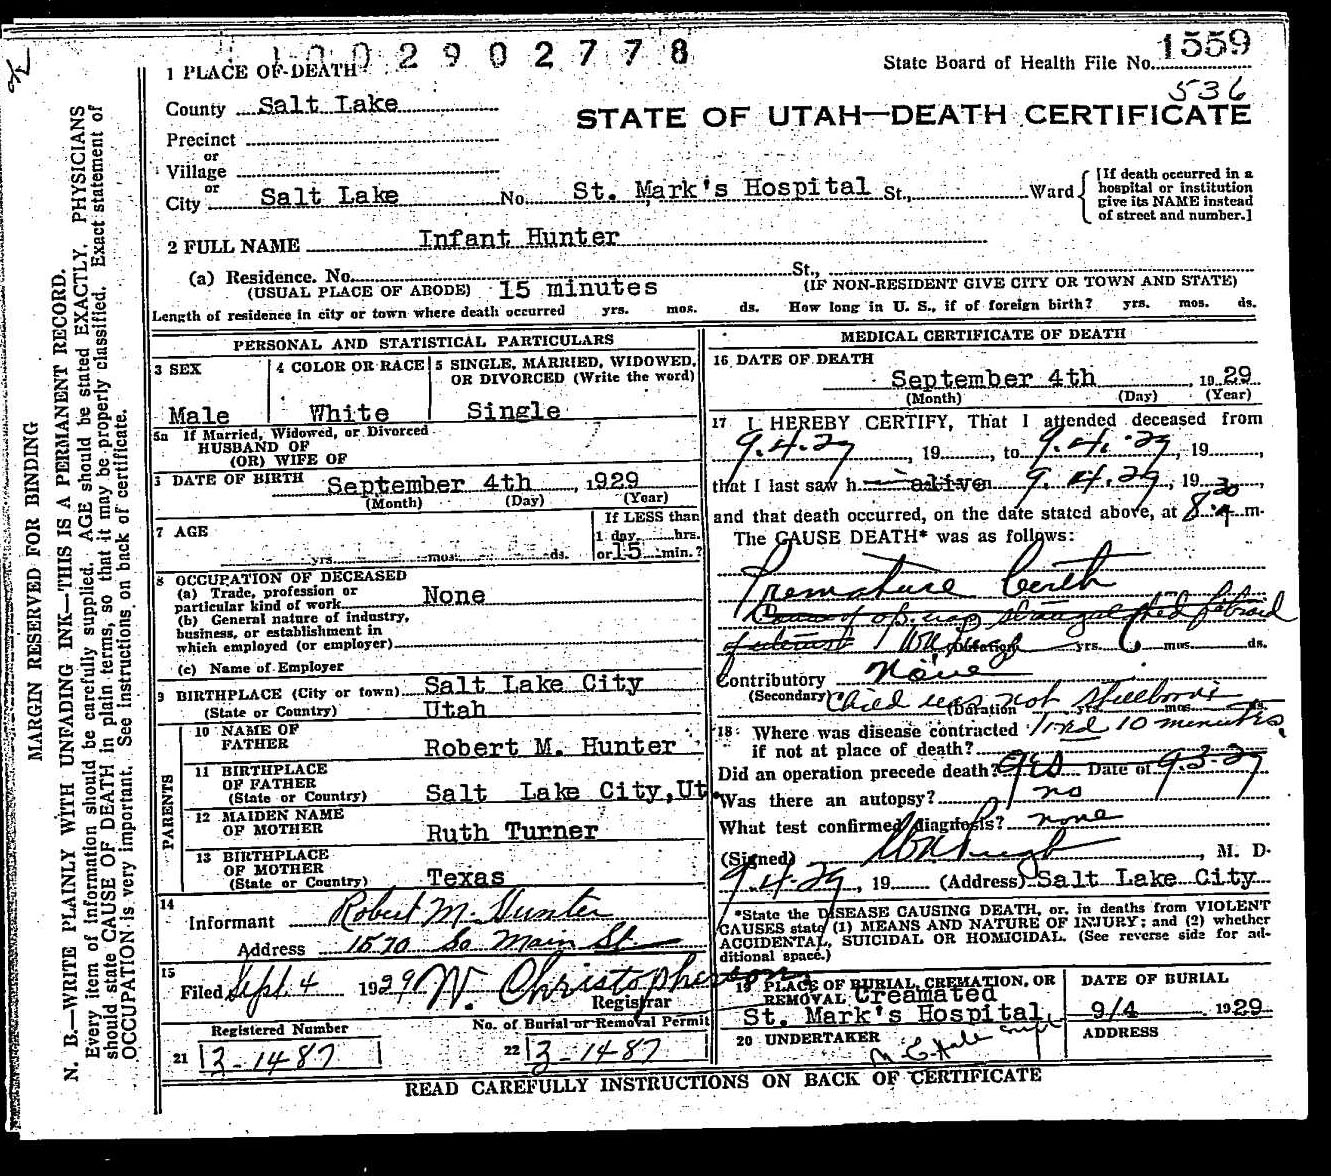 1 0 0 2 9 0 2 7 7 8
State Board of Health File No. 1559
536
STATE OF UTAH—DEATH CERTIFICATE
1 PLACE OF DEATH
County Salt Lake
Precinct
or
Village
or
City Salt Lake No. St. Mark's Hospital St., Ward
[If death occurred in a
hospital or institution
give its NAME instead
of street and number.]
2 FULL NAME Infant Hunter
(a) Residence. No. St.,
(USUAL PLACE OF ABODE) 15 minutes (IF NON-RESIDENT GIVE CITY OR TOWN AND STATE)
Length of residence in city or town where death occurred yrs. mos. ds. How long in U. S., if of foreign birth? yrs. mos. ds.
MARGIN RESERVED FOR BINDING
N. B.—WRITE PLAINLY WITH UNFADING INK—THIS IS A PERMANENT RECORD.
Every item of information should be carefully supplied. AGE should be stated EXACTLY. PHYSICIANS
should state CAUSE OF DEATH in plain terms, so that it may be properly classified. Exact statement of
OCCUPATION is very important. See instructions on back of certificate.
PERSONAL AND STATISTICAL PARTICULARS
3 SEX
Male
4 COLOR OR RACE
White
5 SINGLE, MARRIED, WIDOWED,
OR DIVORCED (Write the word)
Single
5a If Married, Widowed, or Divorced
HUSBAND OF
(OR) WIFE OF
DATE OF BIRTH September 4th, 1929
(Month) (Day) (Year)
7 AGE
yrs. mos. ds.
If LESS than
1 day, hrs.
or 15 min.?
8 OCCUPATION OF DECEASED
(a) Trade, profession or
particular kind of work None
(b) General nature of industry,
business, or establishment in
which employed (or employer)
(c) Name of Employer
9 BIRTHPLACE (City or town) Salt Lake City
(State or Country) Utah
PARENTS
10 NAME OF
FATHER Robert M. Hunter
11 BIRTHPLACE
OF FATHER
(State or Country) Salt Lake City, Ut.
12 MAIDEN NAME
OF MOTHER Ruth Turner
13 BIRTHPLACE
OF MOTHER
(State or Country) Texas
14
Informant Robert M. Hunter
Address 1570 So Main St
15
Filed Sept. 4 1929 W. Christopherson
Registrar
Registered Number
21 3-1487
No. of Burial or Removal Permit
22 3-1487
MEDICAL CERTIFICATE OF DEATH
16 DATE OF DEATH
September 4th, 1929
(Month) (Day) (Year)
17 I HEREBY CERTIFY, That I attended deceased from
9.4.29, 19, to 9.4.29, 19,
that I last saw h alive on 9.4.29, 19,
and that death occurred, on the date stated above, at 8:30 A m.
The CAUSE DEATH* was as follows:
Premature birth
(Duration) yrs. 6 mos. ds.
Contributory None
(Secondary) Child was not stillborn
(Duration yrs. mos. ds.
lived 10 minutes
18 Where was disease contracted
if not at place of death?
Did an operation precede death? yes Date of 9-3-29
Was there an autopsy? no
What test confirmed diagnosis? none
(Signed) , M. D.
9.4.29, 19 (Address) Salt Lake City
*State the DISEASE CAUSING DEATH, or, in deaths from VIOLENT
CAUSES state (1) MEANS AND NATURE OF INJURY; and (2) whether
ACCIDENTAL, SUICIDAL OR HOMICIDAL. (See reverse side for ad-
ditional space.)
19 PLACE OF BURIAL, CREMATION, OR
REMOVAL Creamated
St. Mark's Hospital
DATE OF BURIAL
9/4 1929
20 UNDERTAKER
ADDRESS
READ CAREFULLY INSTRUCTIONS ON BACK OF CERTIFICATE